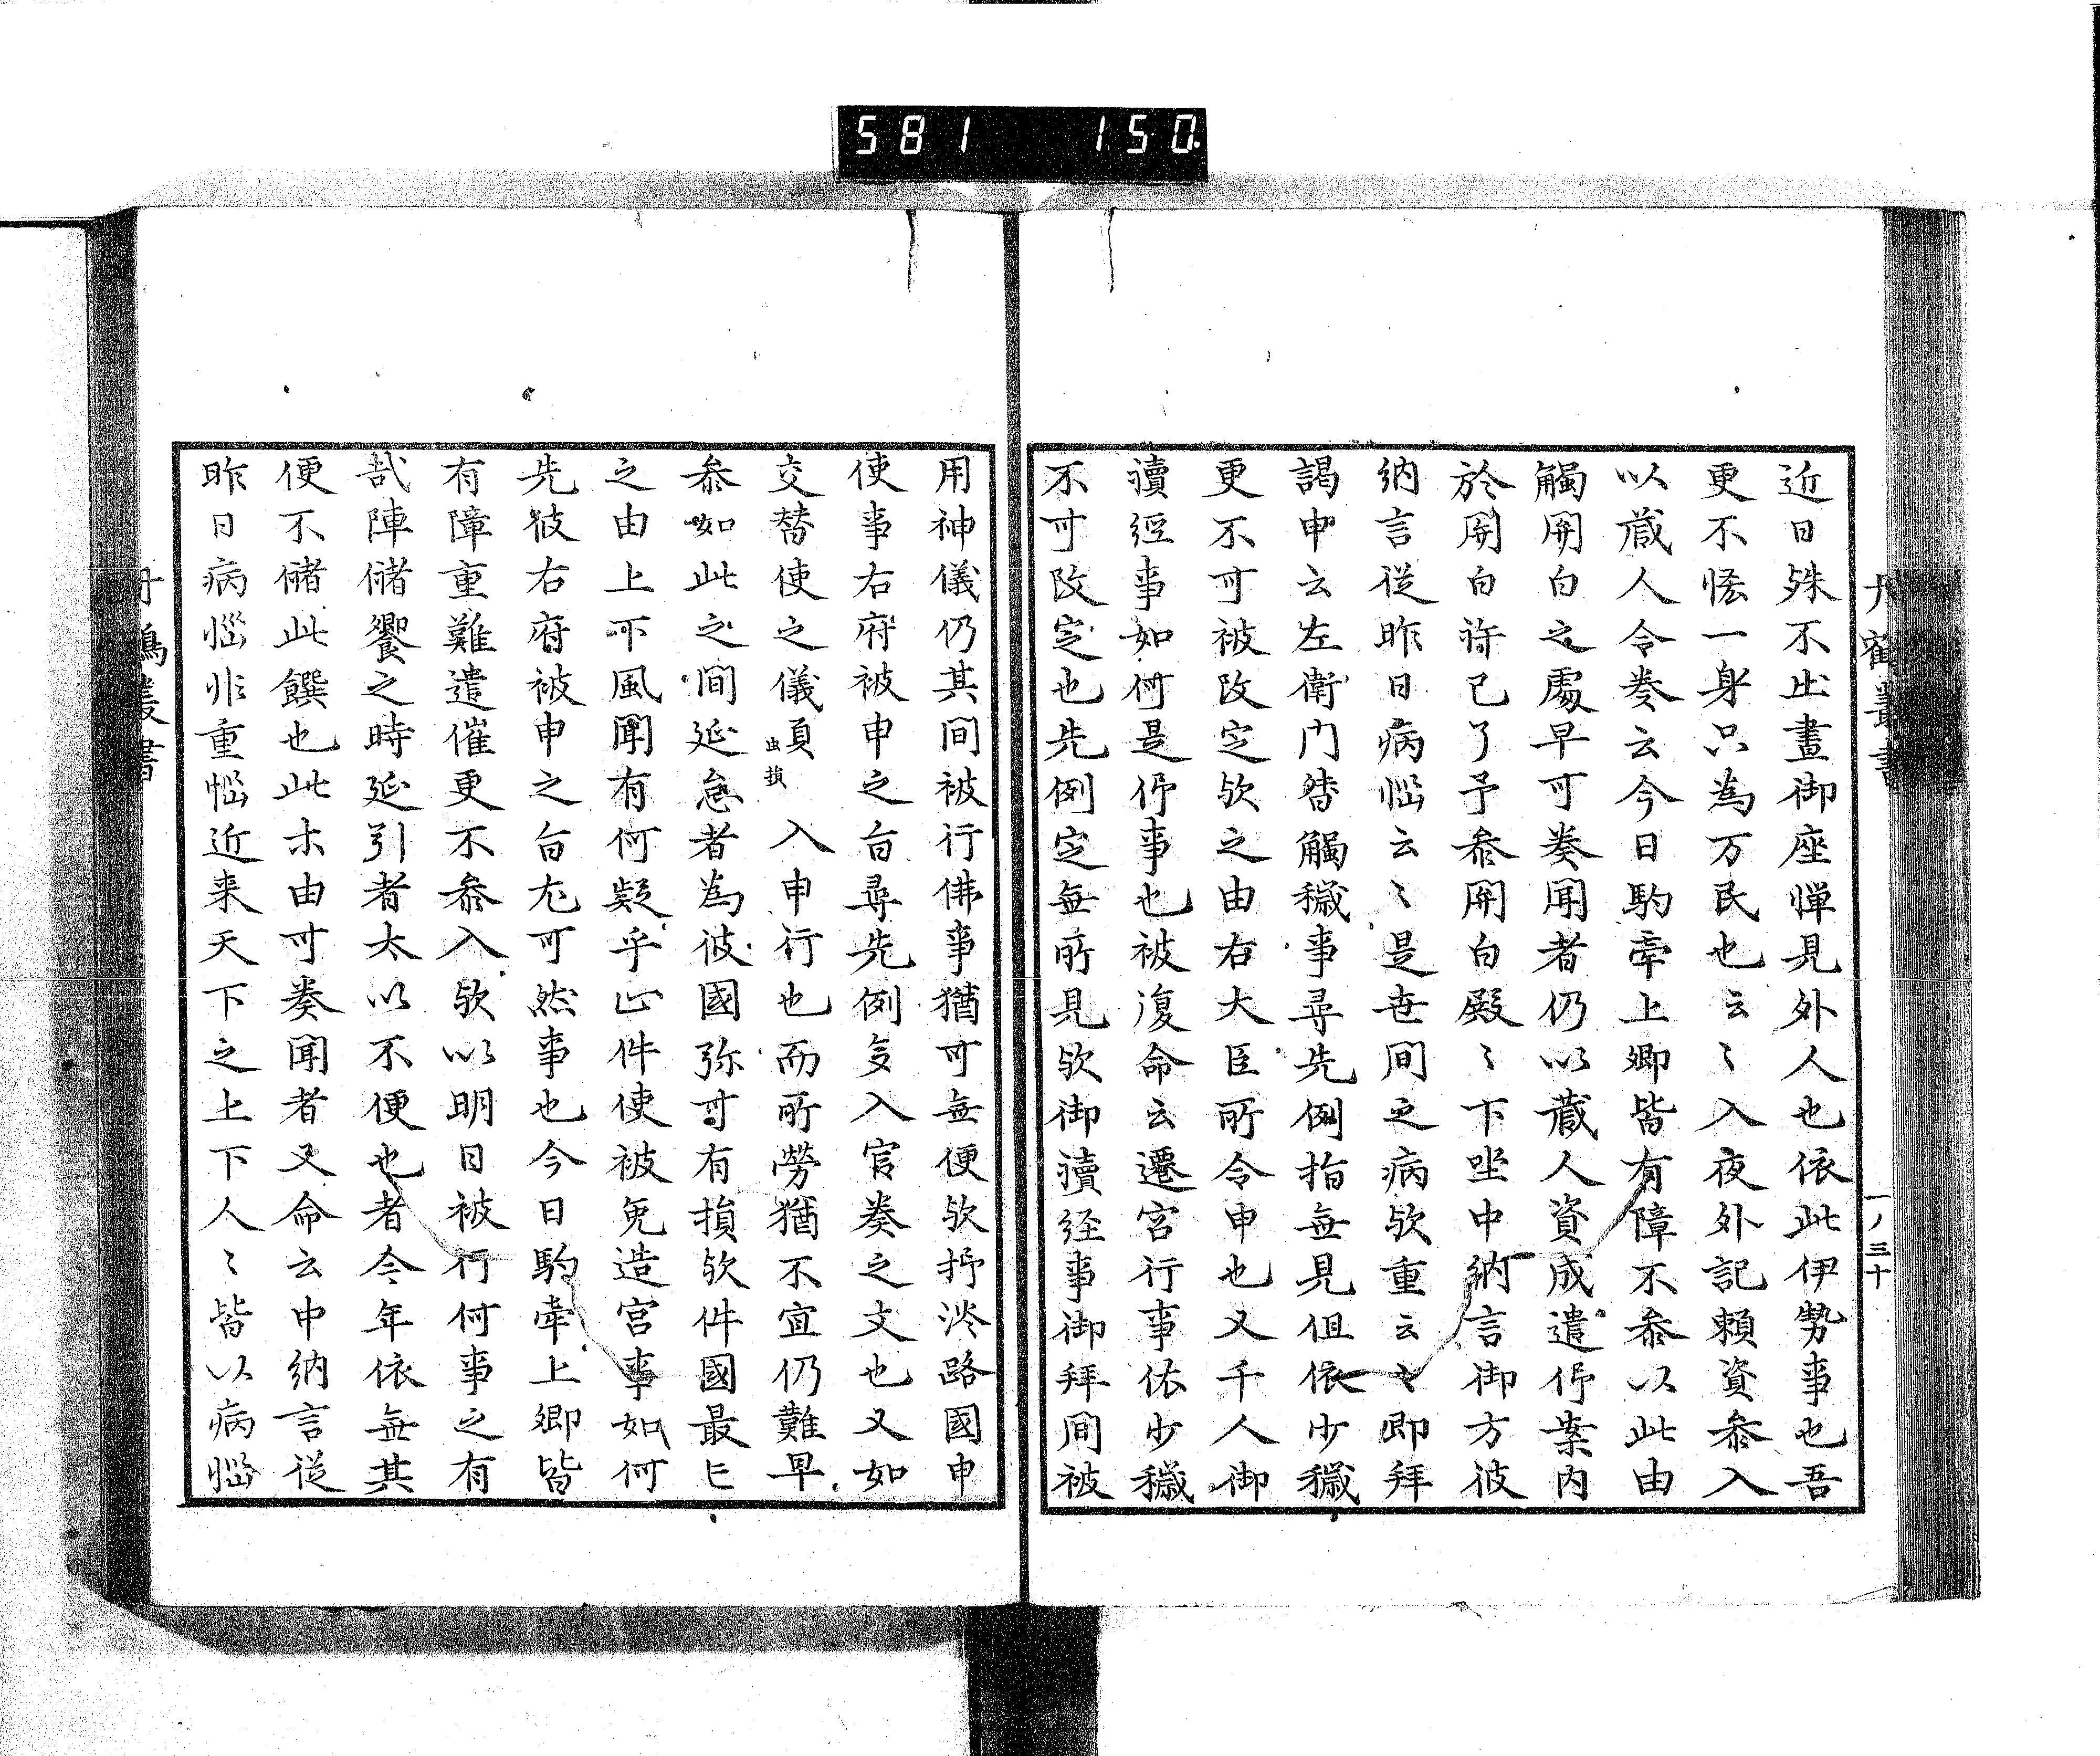 581 150.
丹鶴叢書
一ノ三十
近日殊不出晝御座憚見外人也依此伊勢事也吾
更不恡一身只為万民也云〻入夜外記頼資叅入
以蔵人令奏云今日駒牽上卿皆有障不叅以此由
觸関白之處早可奏聞者仍以蔵人資成遣仰案内
於関白許已了予叅関白殿〻下坐中納言御方彼
納言従昨日病悩云〻是世間之病欤重云〻即拜
謁申云左衛門督觸穢事尋先例指無見但依少穢
更不可被改定欤之由右大臣所令申也又千人御
讀經事如何是仰事也被復命云遷宮行事依少穢
不可改定也先例定無所見欤御讀経事御拜間被
用神儀仍其間被行佛事猶可無便欤抑淡路國申
使事右府被申之旨尋先例多入官奏之文也又如
交替使之儀頁虫損 入申行也而所勞猶不宜仍難早
叅如此之間延怠者為彼國弥可有損欤件國最亡
之由上下風聞有何疑乎止件使被免造宮事如何
先彼右府被申之旨尤可然事也今日駒牽上卿皆
有障重難遣催更不叅入欤以明日被行何事之有
哉陣儲饗之時延引者太以不便也者今年依無其
便不儲此饌也此木由可奏聞者又命云中納言従
昨日病悩非重悩近来天下之上下人〻皆以病悩